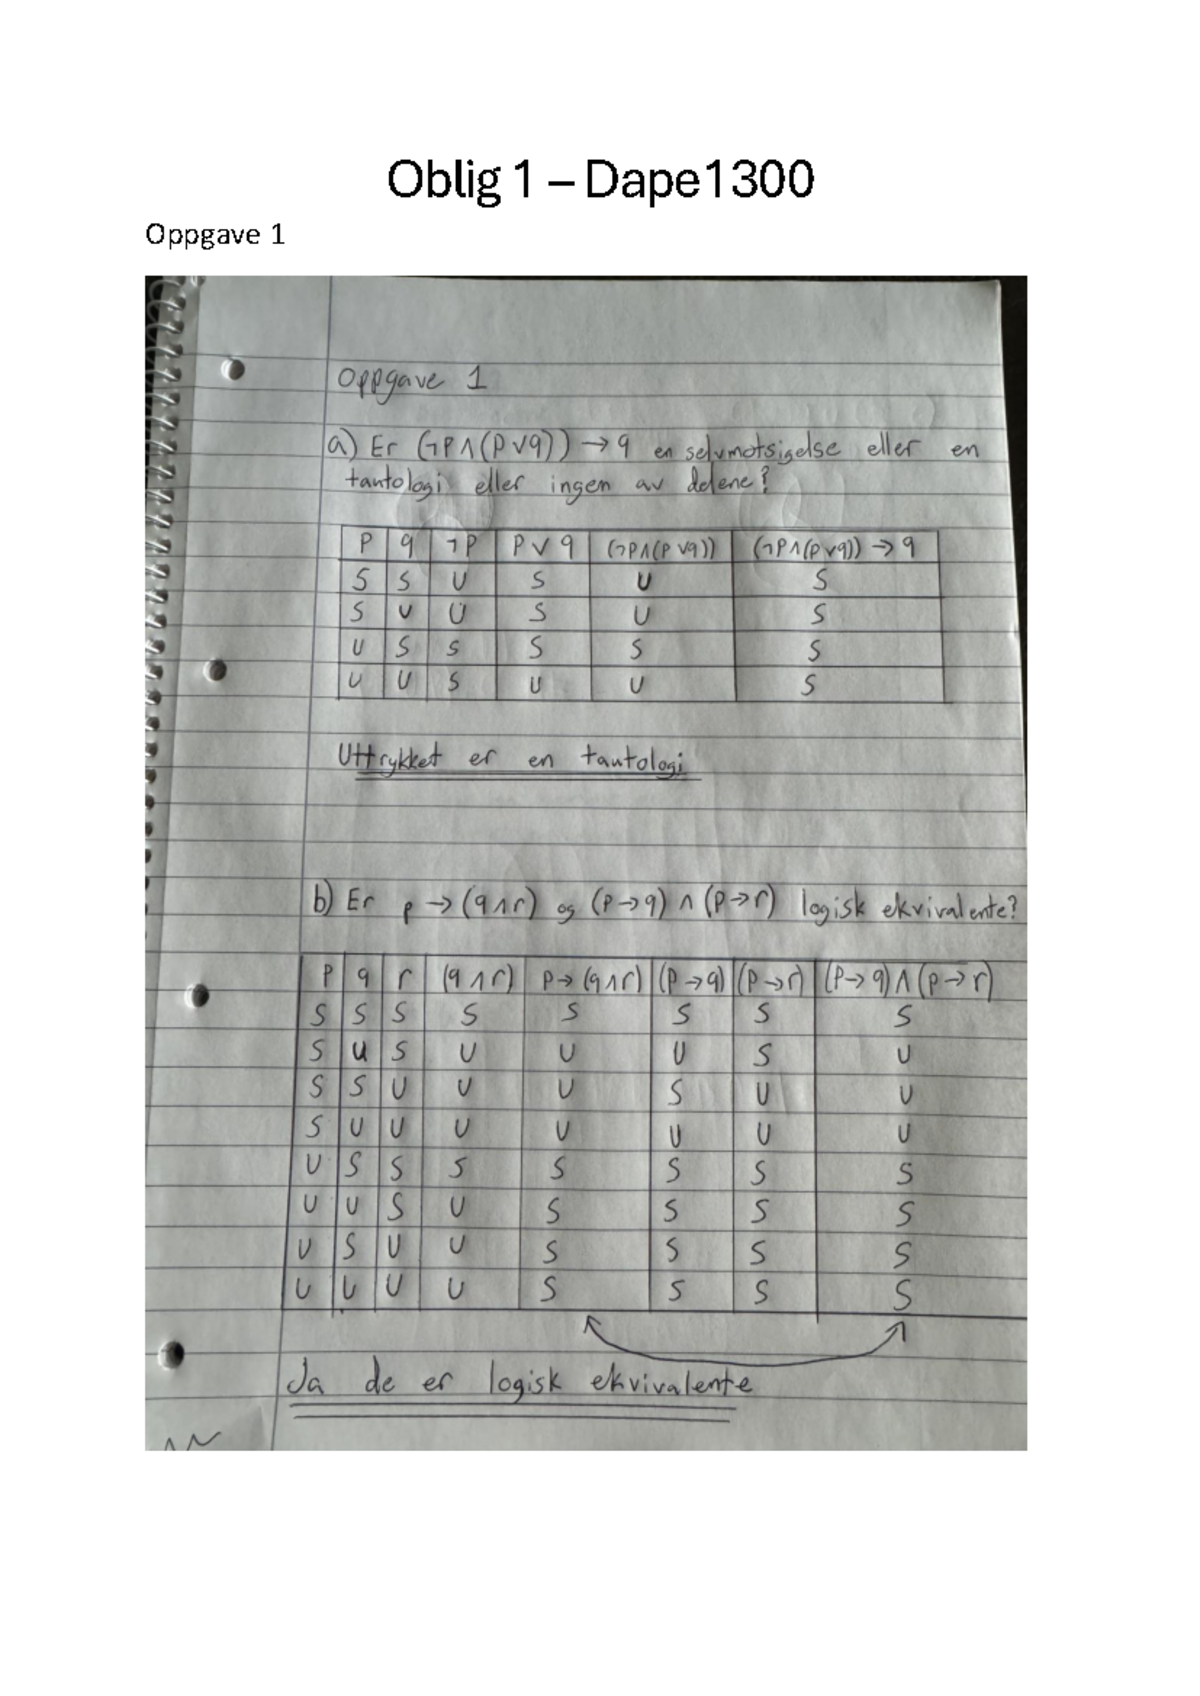 Oblig 1 – Dape1300
Oppgave 1
Oppgave 1
a) Er (¬p∧(p∨q)) → q en selvmotsigelse eller en
tautologi eller ingen av delene?
p q ¬p p ∨ q (¬p∧(p∨q)) (¬p∧(p∨q)) → q
S S U S U S
S U U S U S
U S S S S S
U U S U U S
Uttrykket er en tautologi
b) Er p → (q∧r) og (p→q) ∧ (p→r) logisk ekvivalente?
p q r (q∧r) p→(q∧r) (p→q) (p→r) (p→q)∧(p→r)
S S S S S S S S
S U S U U U S U
S S U U U S U U
S U U U U U U U
U S S S S S S S
U U S U S S S S
U S U U S S S S
U U U U S S S S
Ja de er logisk ekvivalente